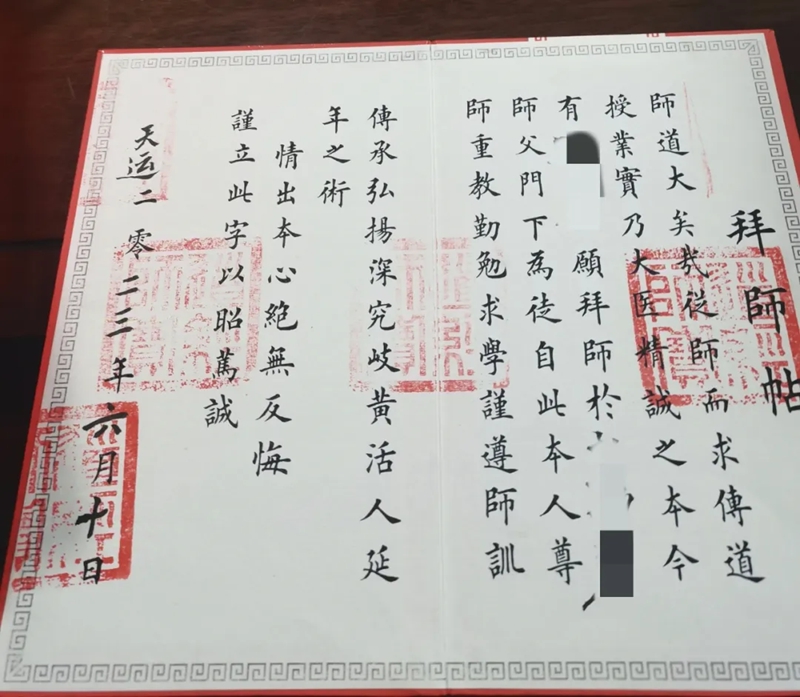 拜師帖
師道大矣哉從師而求傳道
授業實乃大医精誠之本今
有願拜師於
師父門下為徒自此本人尊
師重教勤勉求學謹遵師訓
傳承弘揚深究岐黃活人延
年之術
情出本心絶無反悔
謹立此字以昭篤誠
天运二零二三年六月十日